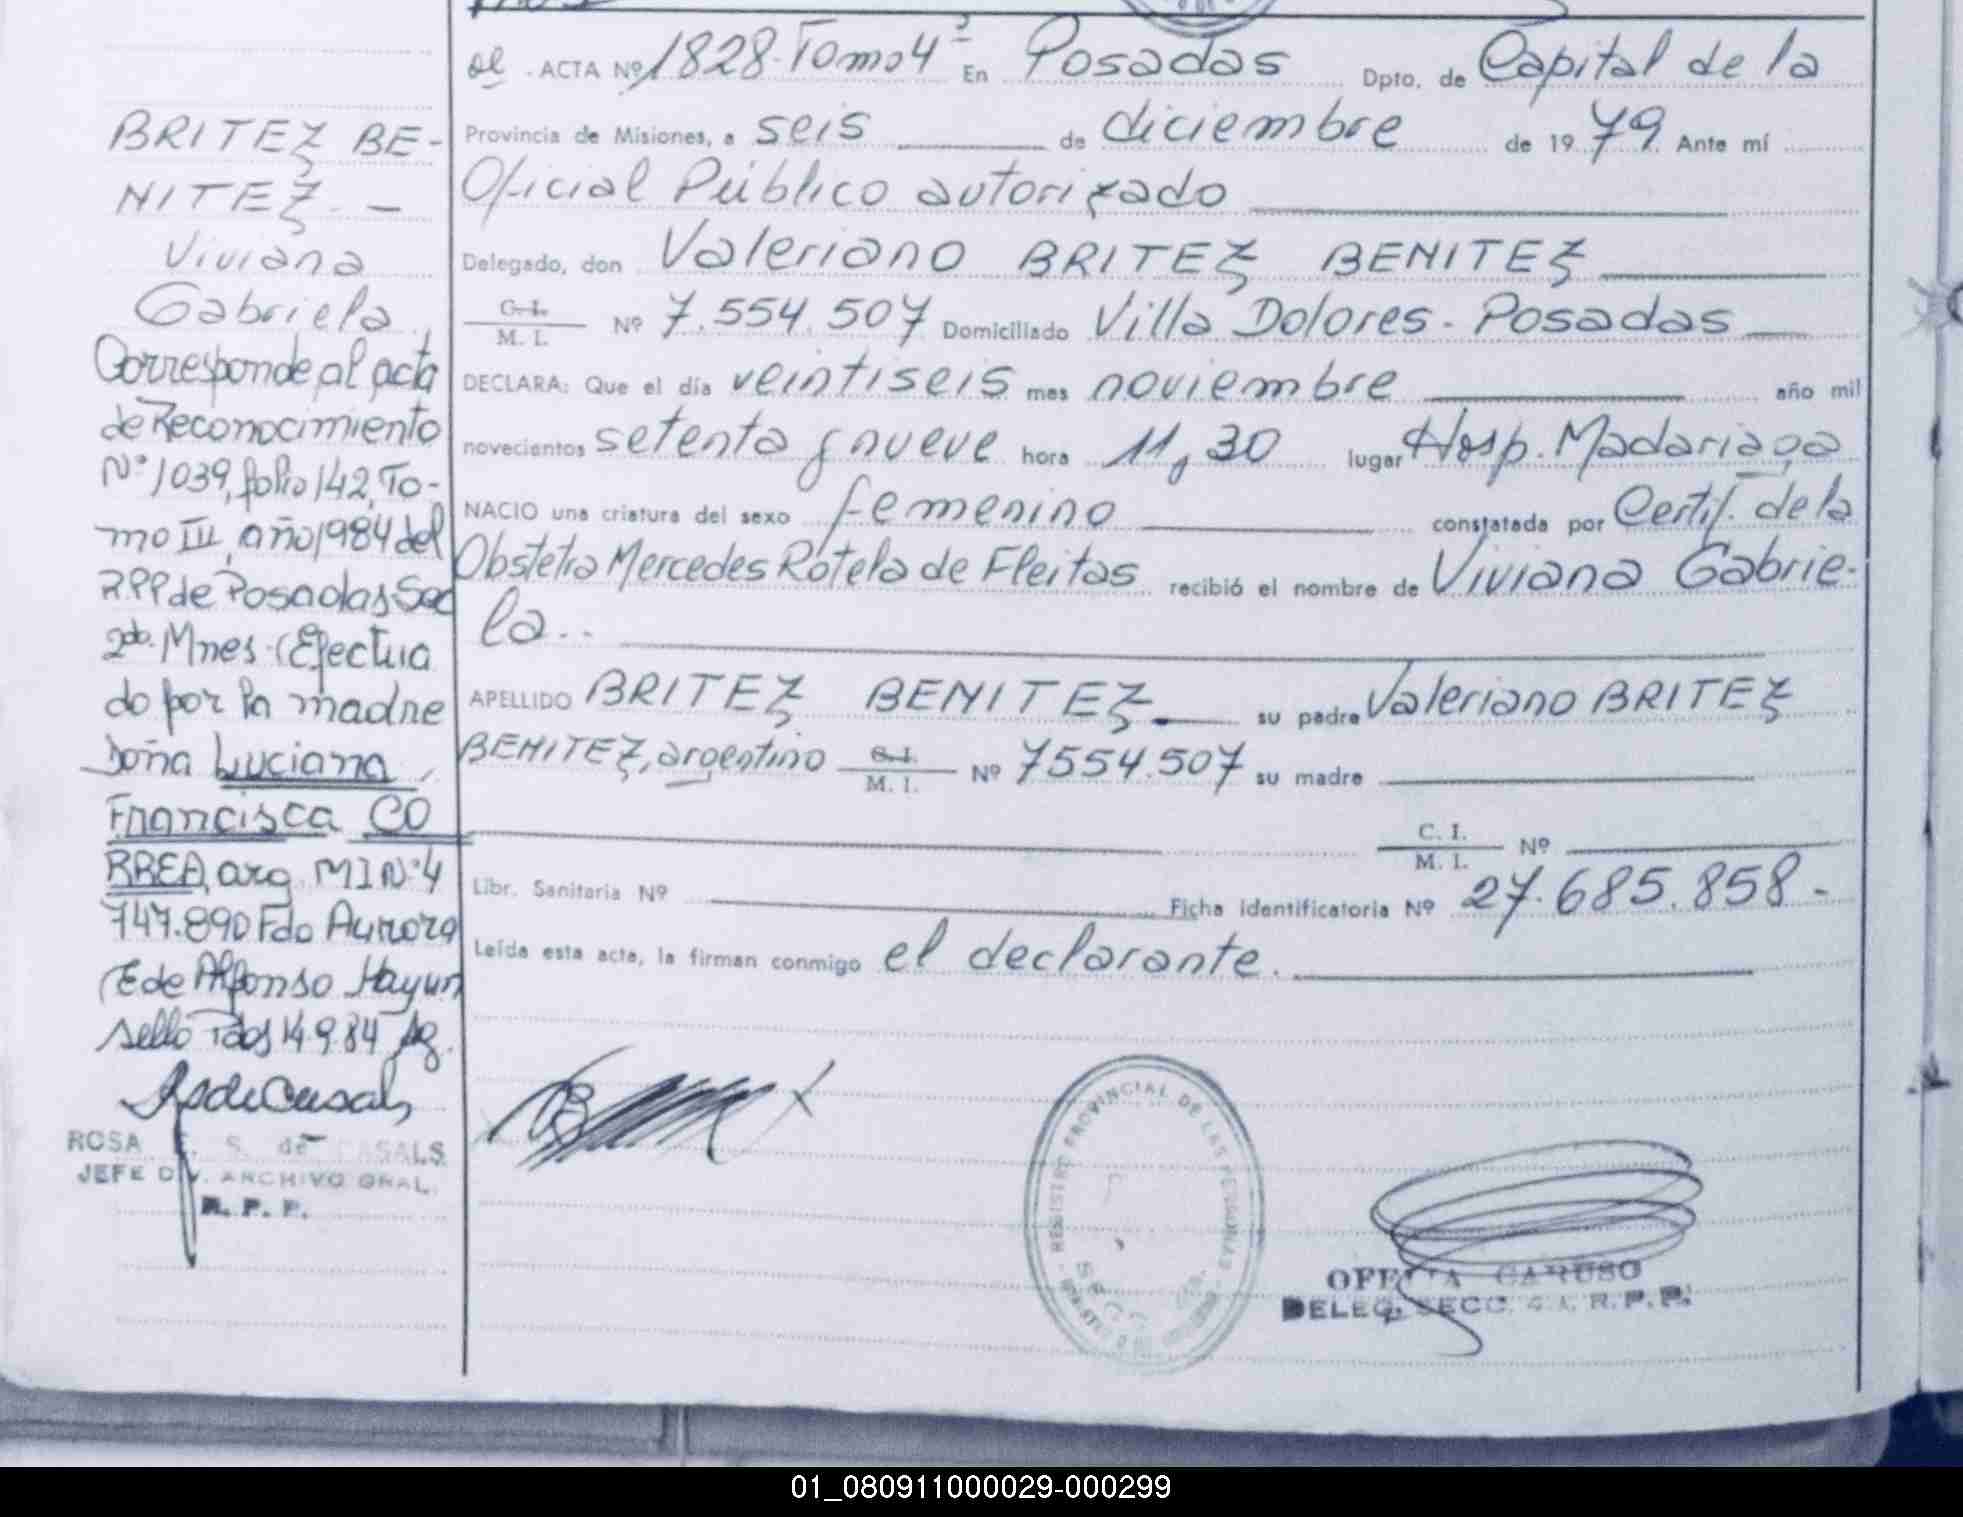 BRITEZ BE-
NITEZ. -
Viviana
Gabriela
Corresponde al acta
de Reconocimiento
Nº 1039, folio 142, To-
mo III, año 1984 del
R.P.P de Posadas Sec
2da. Mnes. (Efectua
do por la madre
Doña Luciana
Francisca CO
RREA, arg. MI Nº 4
747.890 Fdo Aurora
E de Alfonso Hayun
sello Pdas 14.9.84
ROSA S. de CASALS
JEFE DIV. ARCHIVO GRAL.
R. P. P.
ACTA Nº 1828. Tomo 4º En Posadas Dpto. de Capital de la
Provincia de Misiones, a seis de diciembre de 1979 Ante mí
Oficial Público autorizado
Delegado, don Valeriano BRITEZ BENITEZ
C. I.
M. I. Nº 7.554.507 Domiciliado Villa Dolores - Posadas
DECLARA: Que el día veintiseis mes noviembre año mil
novecientos setenta y nueve hora 11,30 lugar Hosp. Madariaga
NACIO una criatura del sexo femenino constatada por Certif. de la
Obstetra Mercedes Rotela de Fleitas recibió el nombre de Viviana Gabrie-
la..
APELLIDO BRITEZ BENITEZ su padre Valeriano BRITEZ
BENITEZ, argentino C. I. M. I. Nº 7554.507 su madre
C. I.
M. I. Nº
Libr. Sanitaria Nº Ficha identificatoria Nº 27.685.858.-
Leída esta acta, la firman conmigo el declarante.
REGISTRO PROVINCIAL DE LAS PERSONAS
OFELIA CARUSO
DELEG. SECC. 4a. R.P.P.
01_080911000029-000299